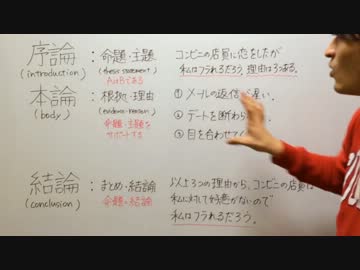 序論 : 命題・主題 コンビニの店員に恋をしたが
(introduction) (thesis statement) 私はフラれるだろう。理由は3つある。
AはBである
本論 : 根拠・理由 ① メールの返信が遅い。
(body) (evidence・reason) ② デートを断わら
命題・主題を
サポートする ③ 目を合わせてく
結論 : まとめ・結論 以上3つの理由から、コンビニの店員は
(conclusion) 命題の結論 私に対して好意がないので
私はフラれるだろう。